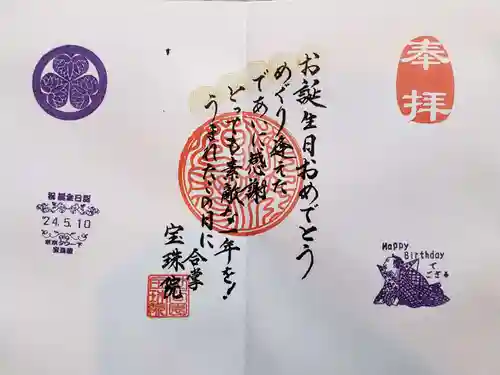 奉拝
お誕生日おめでとう
めぐり逢えた
であいに感謝
とっても素敵な一年を!
うまれたこの月に
合掌
宝珠院
祝 誕生日
24.5.10
東京タワー下
宝珠院
Happy
Birthday
で
ござる